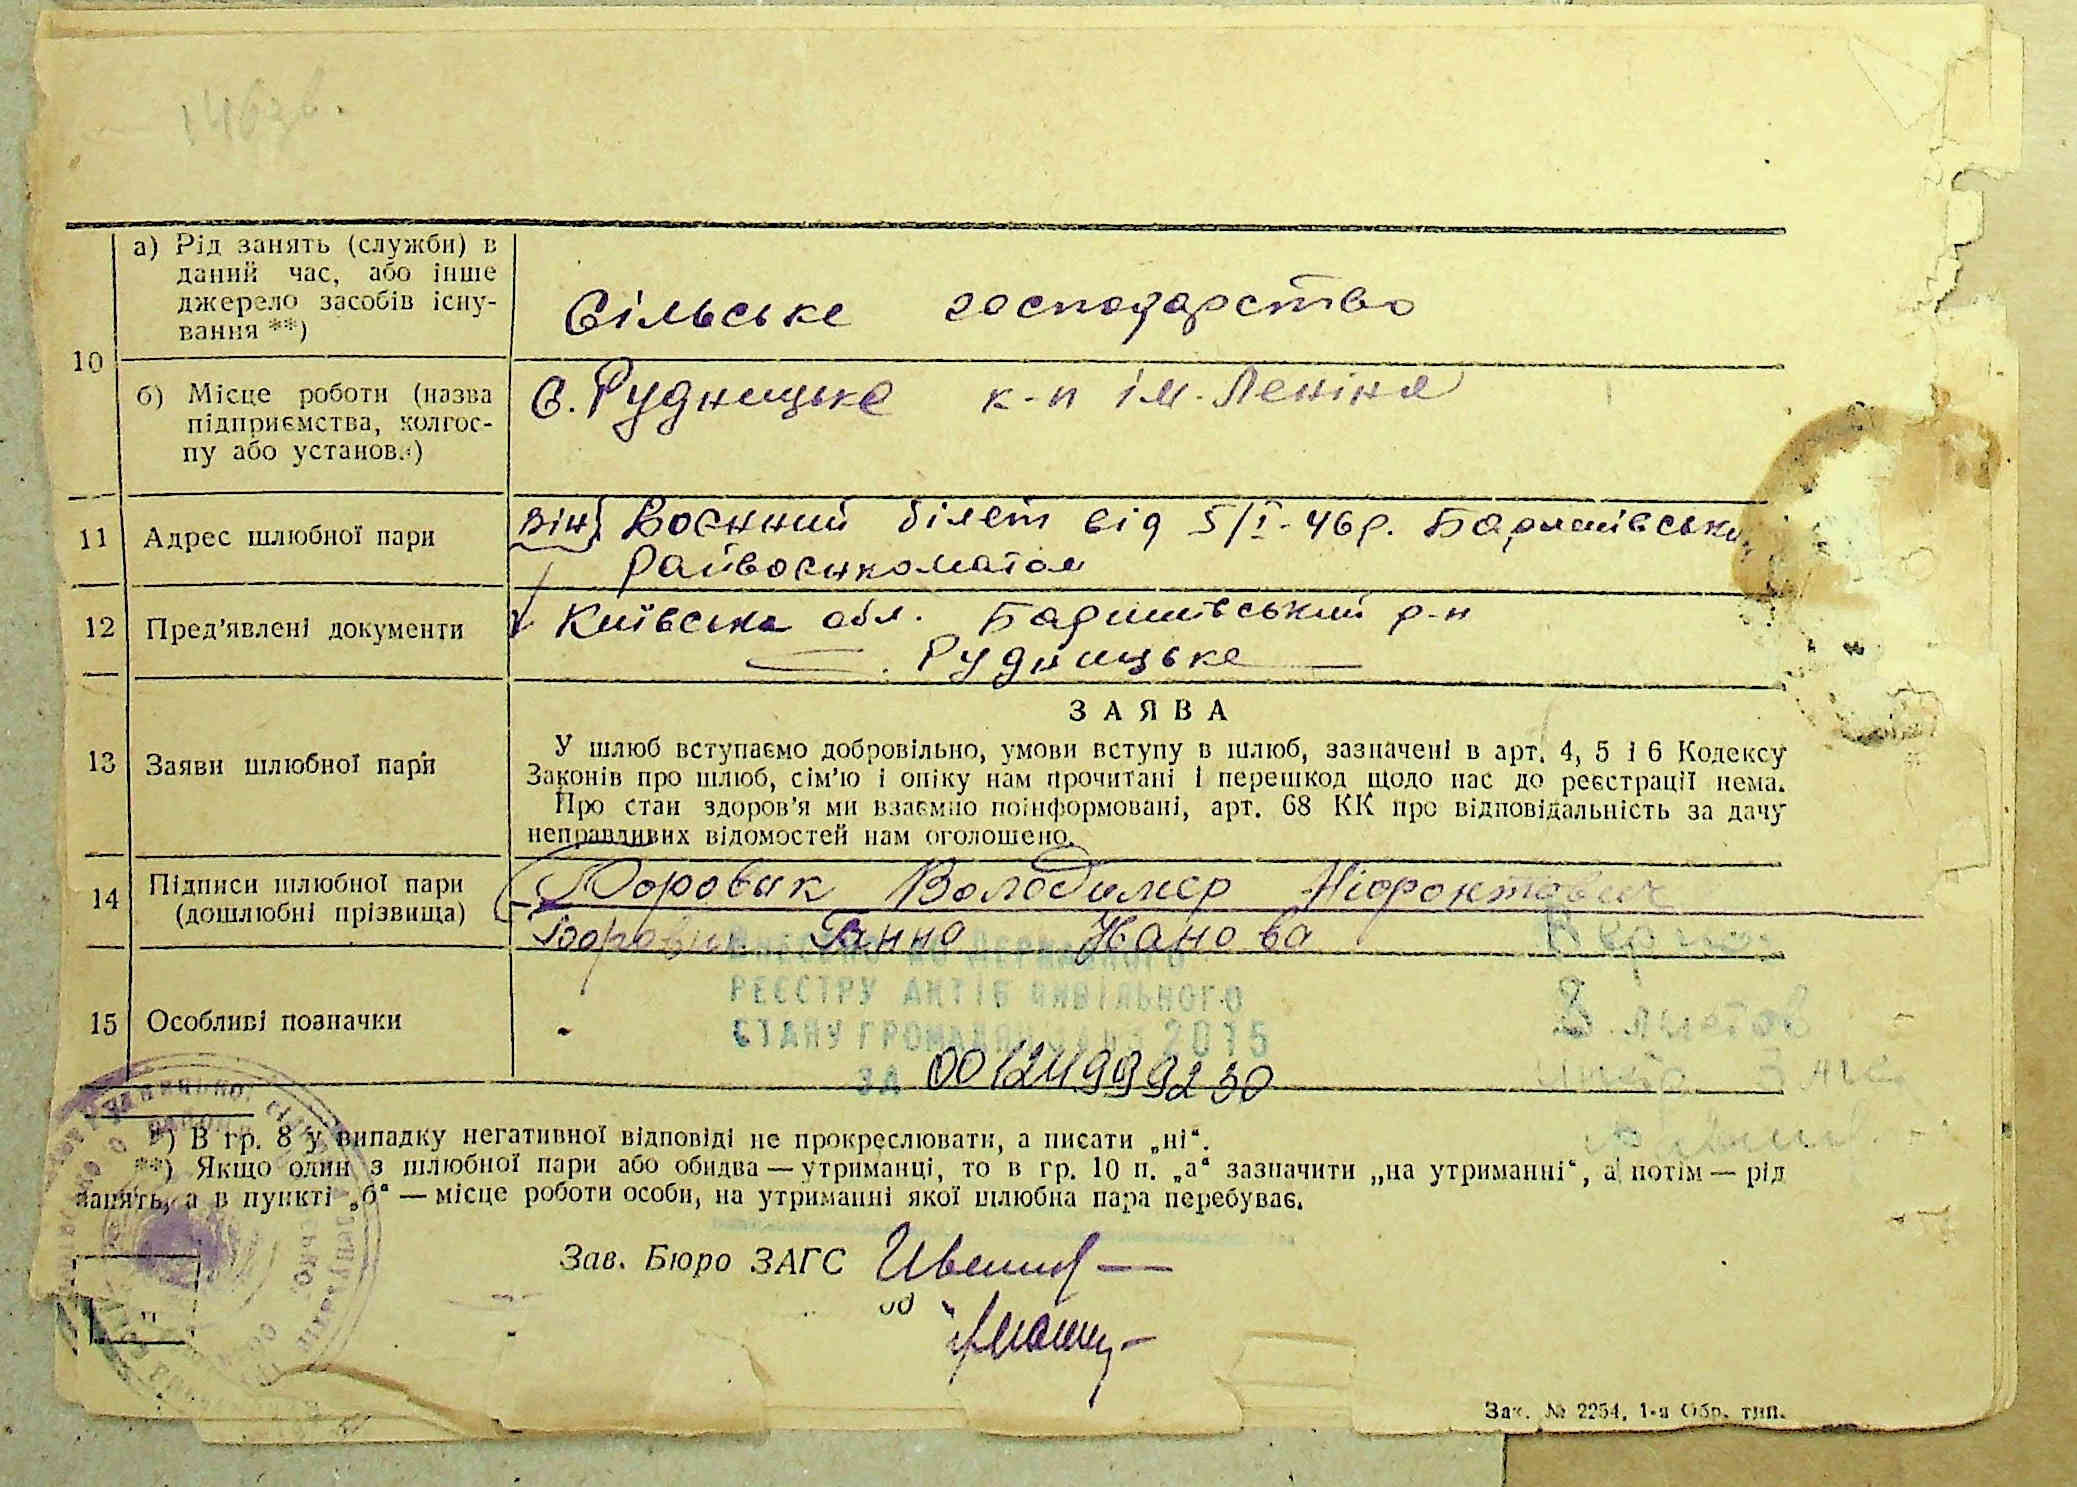 а) Рід занять (служби) в
даний час, або інше
джерело засобів існу-
вання **)
Сільське господарство
10
б) Місце роботи (назва
підприємства, колгос-
пу або установи)
С. Рудницьке к-п ім. Леніна
11 Адрес шлюбної пари
він Воєнний білет від 5/I-46р. Баришівськи
райвоєнкоматом
12 Пред’явлені документи
Київська обл. Баришівський р-н
Рудницьке
13 Заяви шлюбної пари
ЗАЯВА
У шлюб вступаємо добровільно, умови вступу в шлюб, зазначені в арт. 4, 5 і 6 Кодексу
Законів про шлюб, сім’ю і опіку нам прочитані і перешкод щодо нас до реєстрації нема.
Про стан здоров’я ми взаємно поінформовані, арт. 68 КК про відповідальність за дачу
неправдивих відомостей нам оголошено.
14 Підписи шлюбної пари
(дошлюбні прізвища)
Боровик Володимер Ніфонтович
Боровик Ганна Іванова
15 Особливі позначки
ДЕРЖАВНОГО
РЕЄСТРУ АКТІВ ЦИВІЛЬНОГО
СТАНУ ГРОМАДЯН 2015
ЗА 00124999230
*) В гр. 8 у випадку негативної відповіді не прокреслювати, а писати „ні“.
**) Якщо один з шлюбної пари або обидва — утриманці, то в гр. 10 п. „а“ зазначити „на утриманні“, а потім — рід
занять, а в пункті „б“ — місце роботи особи, на утриманні якої шлюбна пара перебуває.
Зав. Бюро ЗАГС
Зак. № 2254, 1-а Обр. тип.